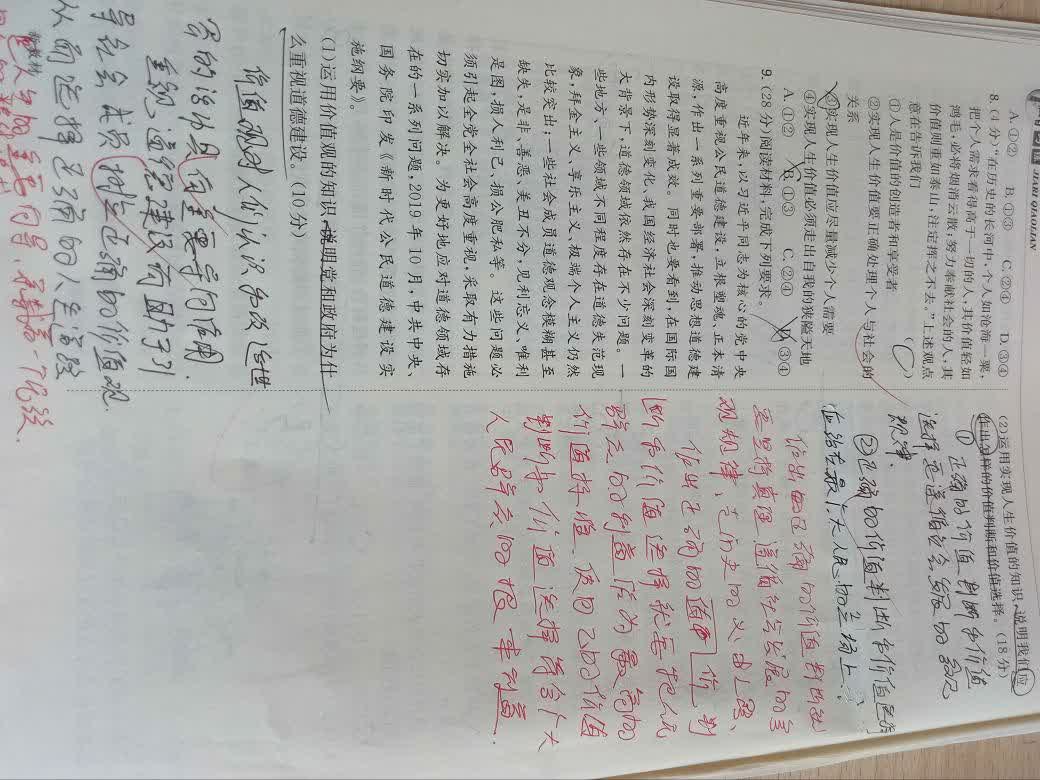 JIAN QIAOLIAN
A.①② B.①③ C.②④ D.③④
8.(4分)“在历史的长河中,个人如沧海一粟,
把个人需求看得高于一切的人,其价值轻如
鸿毛,必将烟消云散;努力奉献社会的人,其
价值则重如泰山,注定挥之不去。”上述观点
意在告诉我们
①人是价值的创造者和享受者
②实现人生价值要正确处理个人与社会的
关系
③实现人生价值应尽量减少个人需要
④实现人生价值必须走出自我的狭隘天地
A.①② B.①③ C.②④ D.③④
9.(28分)阅读材料,完成下列要求。
近年来,以习近平同志为核心的党中央
高度重视公民道德建设,立根塑魂、正本清
源,作出一系列重要部署,推动思想道德建
设取得显著成效。同时也要看到,在国际国
内形势深刻变化、我国经济社会深刻变革的
大背景下,道德领域依然存在不少问题。一
些地方、一些领域不同程度存在道德失范现
象,拜金主义、享乐主义、极端个人主义仍然
比较突出;一些社会成员道德观念模糊甚至
缺失,是非、善恶、美丑不分,见利忘义、唯利
是图,损人利己、损公肥私等。这些问题必
须引起全党全社会高度重视,采取有力措施
切实加以解决。为更好地应对道德领域存
在的一系列问题,2019年10月,中共中央、
国务院印发《新时代公民道德建设实
施纲要》。
(1)运用价值观的知识,说明党和政府为什
么重视道德建设。(10分)
价值观对人们认识和改造世
界的活动具有重要导向作用.
重视道德建设有助于引
导社会成员树立正确的价值观.
从而选择正确的人生道路
(2)运用实现人生价值的知识,说明我们应
作出怎样的价值判断和价值选择。(18分)
①正确的价值判断和价值
选择要遵循社会发展的客观
规律.
②正确的价值判断和价值选择
应站在最广大人民的立场上.
作出正确的价值判断就
要坚持真理遵循社会发展的客
观规律、走历史的必由之路、
作出正确的价值判
断和价值选择就要把人民
群众的利益作为最高的
价值标准、使自己的价值
判断和价值选择符合广大
人民群众的根本利益.